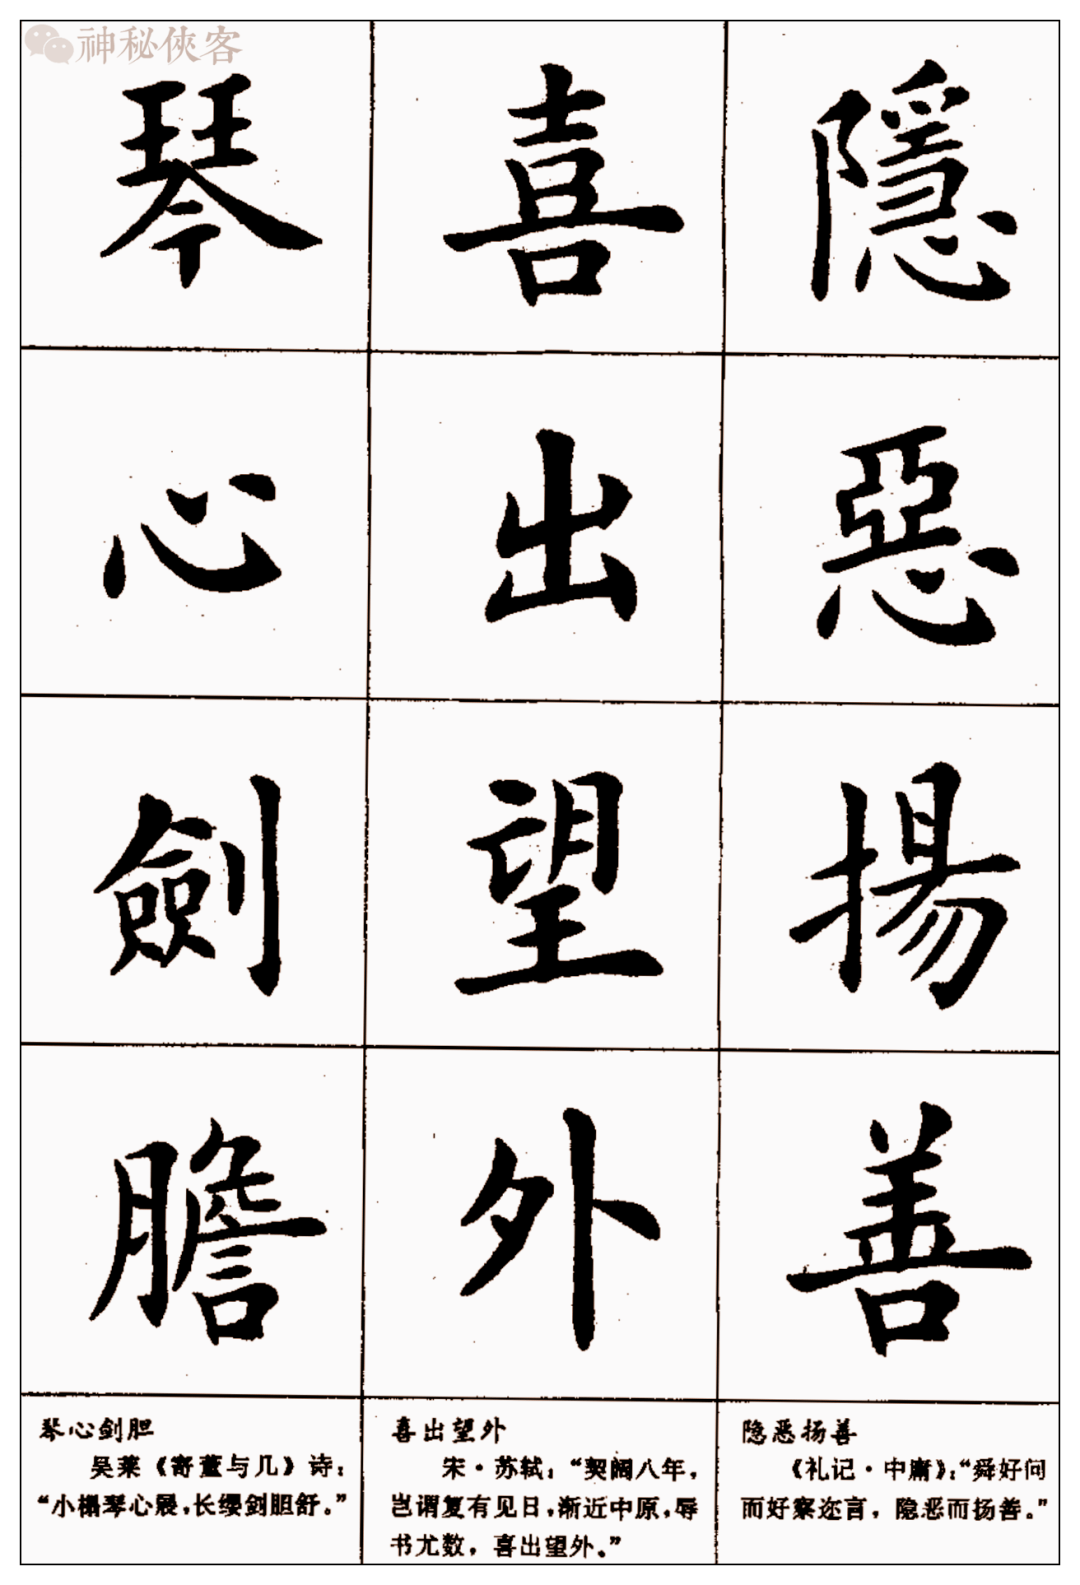 神秘俠客
隱惡揚善
喜出望外
琴心劍膽
隐恶扬善
《礼记·中庸》：“舜好问
而好察迩言，隐恶而扬善。”
喜出望外
宋·苏轼：“契阔八年，
岂谓复有见日，渐近中原，辱
书尤数，喜出望外。”
琴心剑胆
吴莱《寄董与几》诗：
“小榻琴心展，长缨剑胆舒。”